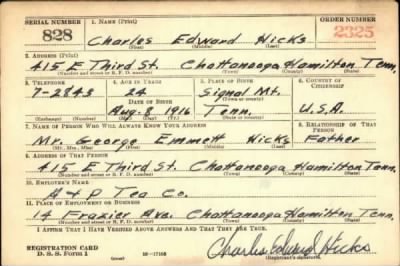 SERIAL NUMBER 1. NAME (Print) ORDER NUMBER
828 Charles Edward Hicks 2325
(First) (Middle) (Last)
2. ADDRESS (Print)
415 E Third St. Chattanooga Hamilton Tenn.
(Number and street or R. F. D. number) (Town) (County) (State)
3. TELEPHONE 4. AGE IN YEARS 5. PLACE OF BIRTH 6. COUNTRY OF CITIZENSHIP
7-2843 24 Signal Mt.
DATE OF BIRTH (Town or county)
Aug. 8, 1916 Tenn. U.S.A.
(Exchange) (Number) (Mo.) (Day) (Yr.) (State or country)
7. NAME OF PERSON WHO WILL ALWAYS KNOW YOUR ADDRESS 8. RELATIONSHIP OF THAT PERSON
Mr. George Emmett Hicks Father
(Mr., Mrs., Miss) (First) (Middle) (Last)
9. ADDRESS OF THAT PERSON
415 E Third St. Chattanooga Hamilton Tenn.
(Number and street or R. F. D. number) (Town) (County) (State)
10. EMPLOYER'S NAME
A & P Tea Co.
11. PLACE OF EMPLOYMENT OR BUSINESS
14 Frazier Ave. Chattanooga Hamilton Tenn.
(Number and street or R. F. D. number) (Town) (County) (State)
I AFFIRM THAT I HAVE VERIFIED ABOVE ANSWERS AND THAT THEY ARE TRUE.
REGISTRATION CARD
D. S. S. Form 1 16—17105 Charles Edward Hicks
(Registrant's signature)